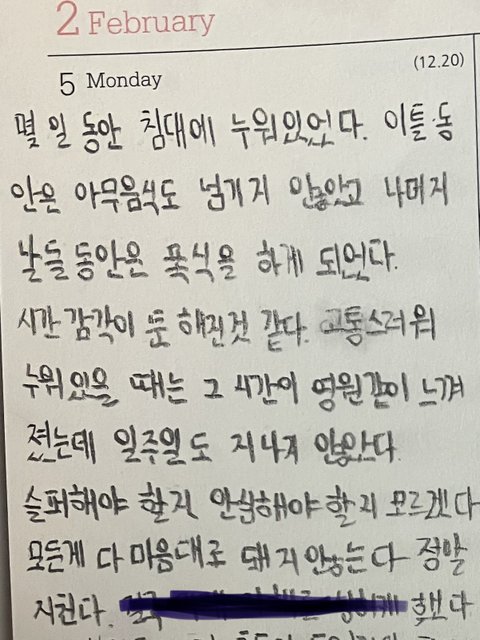 2 February
(12.20)
5 Monday
몇 일 동안 침대에 누워있었다. 이틀 동
안은 아무음식도 넘기지 안놓았고 나머지
날들 동안은 폭식을 하게 되었다.
시간 감각이 둔해진것 같다. 고통스러워
누워있을 때는 그 시간이 영원같이 느껴
졌는데 일주일도 지나지 않았다.
슬퍼해야 할지 안심해야 할지 모르겠다
모든게 다 마음대로 돼지 안놓는다 정말
지친다. 했다